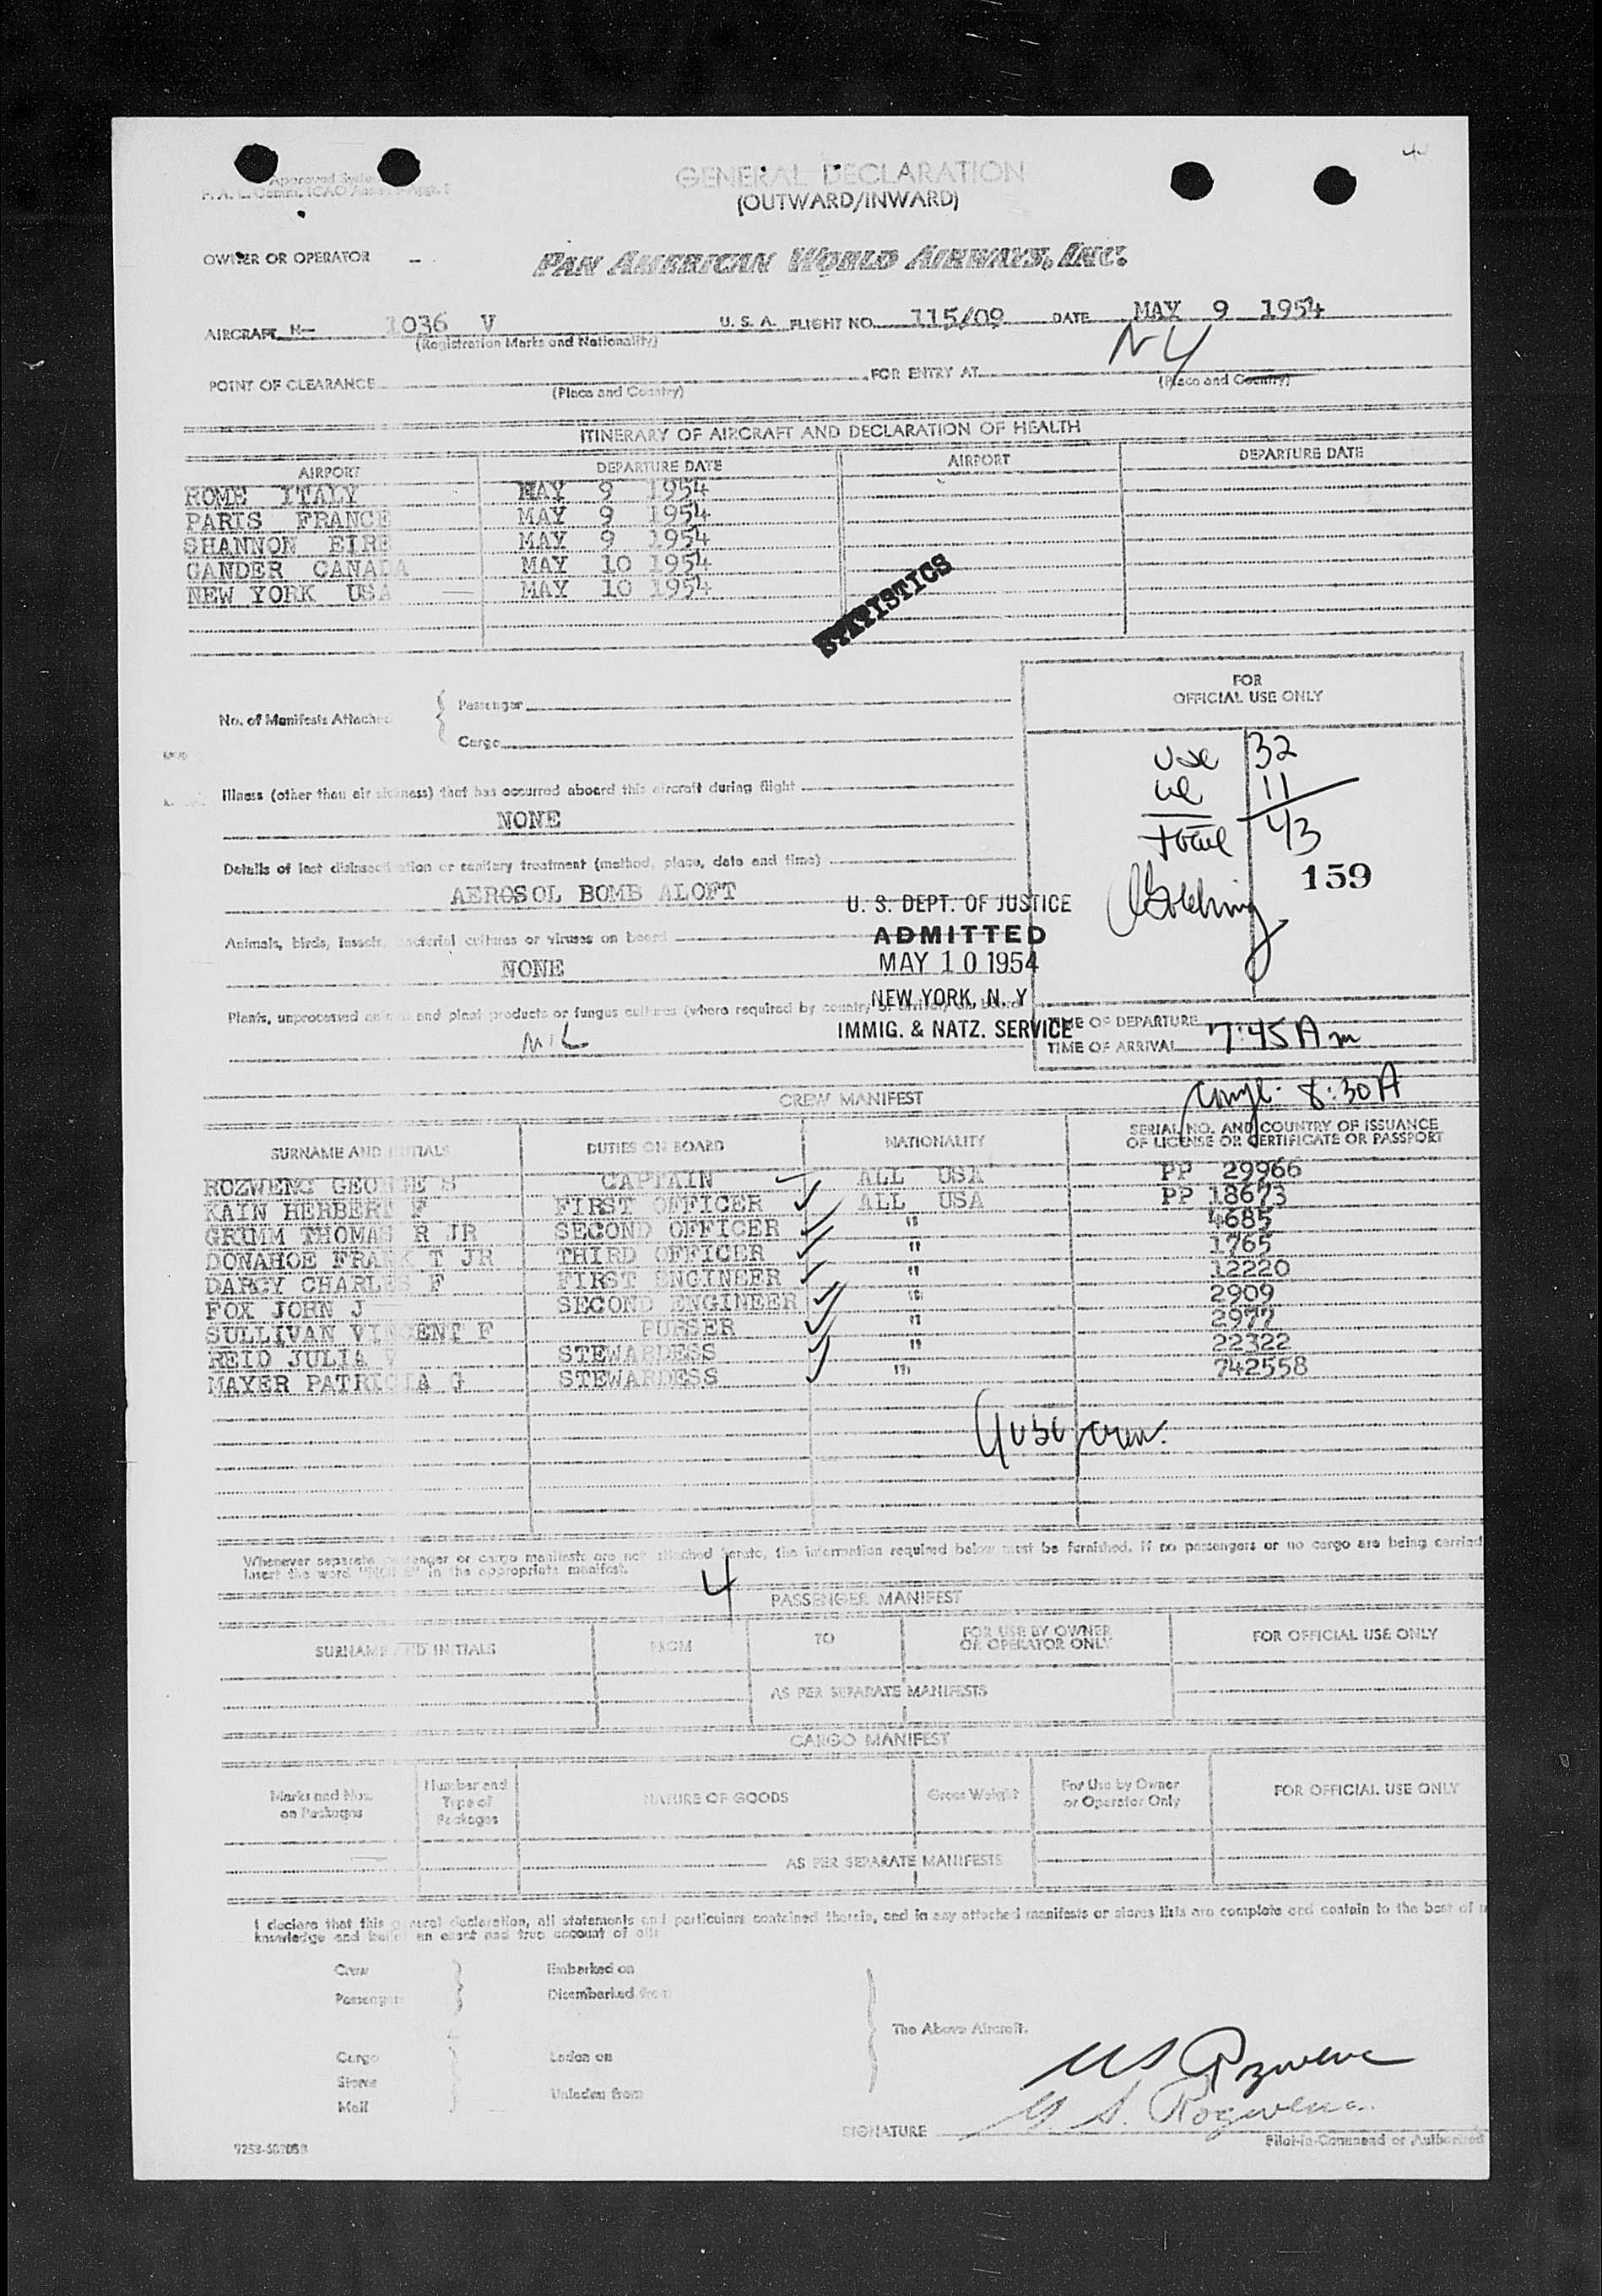 GENERAL DECLARATION
(OUTWARD/INWARD)
Approved
OWNER OR OPERATOR
PAN AMERICAN WORLD AIRWAYS, INC.
AIRCRAFT N- 1036 V U. S. A. FLIGHT NO. 115/09 DATE MAY 9 1954
(Registration Marks and Nationality)
NY
POINT OF CLEARANCE FOR ENTRY AT
(Place and Country) (Place and Country)
ITINERARY OF AIRCRAFT AND DECLARATION OF HEALTH
AIRPORT DEPARTURE DATE AIRPORT DEPARTURE DATE
ROME ITALY MAY 9 1954
PARIS FRANCE MAY 9 1954
SHANNON EIRE MAY 9 1954
GANDER CANADA MAY 10 1954
NEW YORK USA MAY 10 1954
STATISTICS
FOR
OFFICIAL USE ONLY
No. of Manifests Attached
Passenger
Cargo
32
11
Total 43
159
Illness (other than air sickness) that has occurred aboard this aircraft during flight
NONE
Details of last disinsectization or sanitary treatment (method, place, date and time)
AEROSOL BOMB ALOFT
Animals, birds, insects, bacterial cultures or viruses on board
NONE
U. S. DEPT. OF JUSTICE
ADMITTED
MAY 10 1954
NEW YORK, N. Y
IMMIG. & NATZ. SERVICE
Plants, unprocessed animal and plant products or fungus cultures (where required by country of arrival) on board
NIL
TIME OF DEPARTURE
TIME OF ARRIVAL 7:45 Am
Compl. 8:30 A
CREW MANIFEST
SURNAME AND INITIALS DUTIES ON BOARD NATIONALITY SERIAL NO. AND COUNTRY OF ISSUANCE
OF LICENSE OR CERTIFICATE OR PASSPORT
ROZWENC GEORGE S CAPTAIN ALL USA PP 29966
KAIN HERBERT F FIRST OFFICER ALL USA PP 18673
GRIMM THOMAS R JR SECOND OFFICER " 4685
DONAHOE FRANK T JR THIRD OFFICER " 1765
DARCY CHARLES F FIRST ENGINEER " 12220
FOX JOHN J SECOND ENGINEER " 2909
SULLIVAN VINCENT F PURSER " 2977
REID JULIA V STEWARDESS " 22322
MAYER PATRICIA G STEWARDESS " 742558
Whenever separate passenger or cargo manifests are not attached hereto, the information required below must be furnished. If no passengers or no cargo are being carried
insert the word "NONE" in the appropriate manifest.
4
PASSENGER MANIFEST
SURNAME AND INITIALS FROM TO FOR USE BY OWNER
OR OPERATOR ONLY FOR OFFICIAL USE ONLY
AS PER SEPARATE MANIFESTS
CARGO MANIFEST
Marks and Nos.
on Packages
Number and
Type of
Packages
NATURE OF GOODS
Gross Weight
For Use by Owner
or Operator Only
FOR OFFICIAL USE ONLY
AS PER SEPARATE MANIFESTS
I declare that this general declaration, all statements and particulars contained therein, and in any attached manifests or stores lists are complete and contain to the best of
knowledge and belief an exact and true account of all:
Crew Embarked on
Passengers Disembarked from
The Above Aircraft.
Cargo Laden on
Stores
Mail Unladen from
G. S. Rozwenc
SIGNATURE
Pilot-in-Command or Authorized